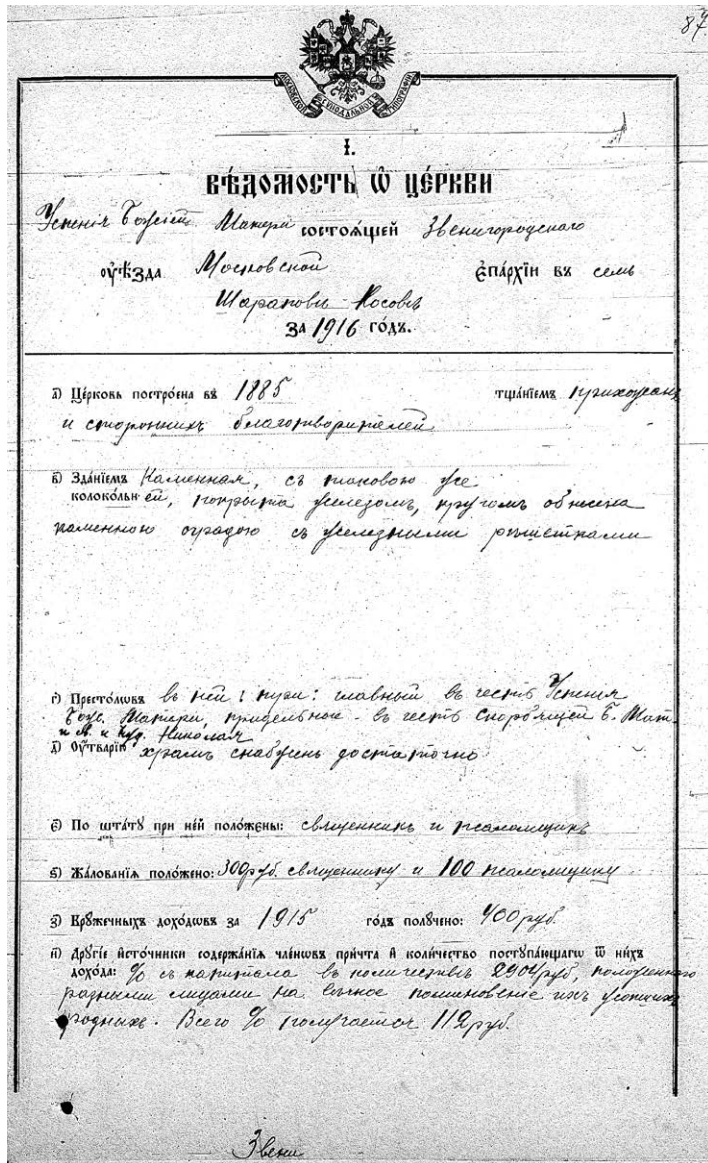 87
МОСКОВСКОЙ СѴНОДАЛЬНОЙ ТИПОГРАФІИ
І.
ВѢДОМОСТЬ Ѡ ЦЕ́РКВИ
Успенія Божіей Матери состоѧ́щей Звенигородскаго
оуѣ́зда Московской є҆па́рхїи въ селѣ
Шараповѣ-Косовѣ
За 1916 го́дъ.
а҃) Це́рковь постро́ена въ 1885 тща́нїемъ прихожанъ
и стороннихъ благотворителей
в҃) Зда́нїемъ Каменная, съ таковою же
колоко́льней, покрыта желѣзомъ, кругомъ обнесена
каменною оградою съ желѣзными рѣшетками
г҃) Престо́лѡвъ въ ней три: главный въ честь Успенія
Бож. Матери, придѣльное - въ честь Скорбящей Б. Мат.
и Николая
д҃) Оу́тварїю храмъ снабженъ достаточно
є҃) По шта́тꙋ при не́й поло́жены: священникъ и псаломщикъ
ѕ҃) Жа́лованїѧ поло́жено: 300 руб. священнику и 100 псаломщику
з҃) Крꙋ́жечныхъ дохо́дѡвъ за 1915 го́дъ полꙋчено: 400 руб.
и҃) Дрꙋгі́е и҆сто́чники содержа́нїѧ чле́нѡвъ при́чта и҆ коли́чество постꙋпа́ющагѡ ѿ ни́хъ
дохо́да: % съ капитала въ количествѣ руб. положеннаго
разными лицами на вѣчное поминовеніе ихъ усопшихъ
родныхъ. Всего % получается 112 руб.
Звени